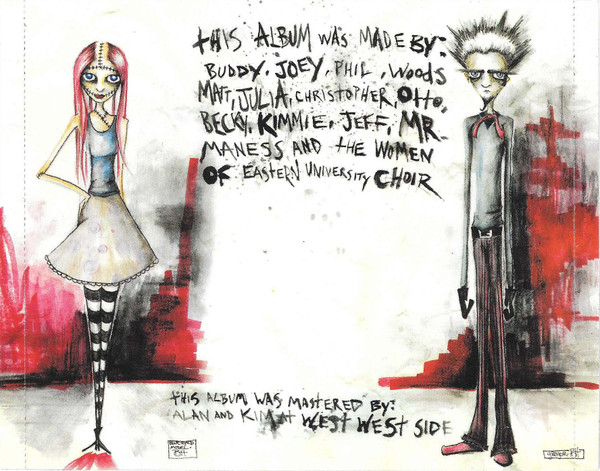 THIS ALBUM WAS MADE BY:
BUDDY, JOEY, PHIL, WOODS
MATT, JULIA, CHRISTOPHER, OTTO,
BECKY, KIMMIE, JEFF, MR.
MANESS AND THE WOMEN
OF EASTERN UNIVERSITY CHOIR
THIS ALBUM WAS MASTERED BY:
ALAN AND KIM AT WEST WEST SIDE